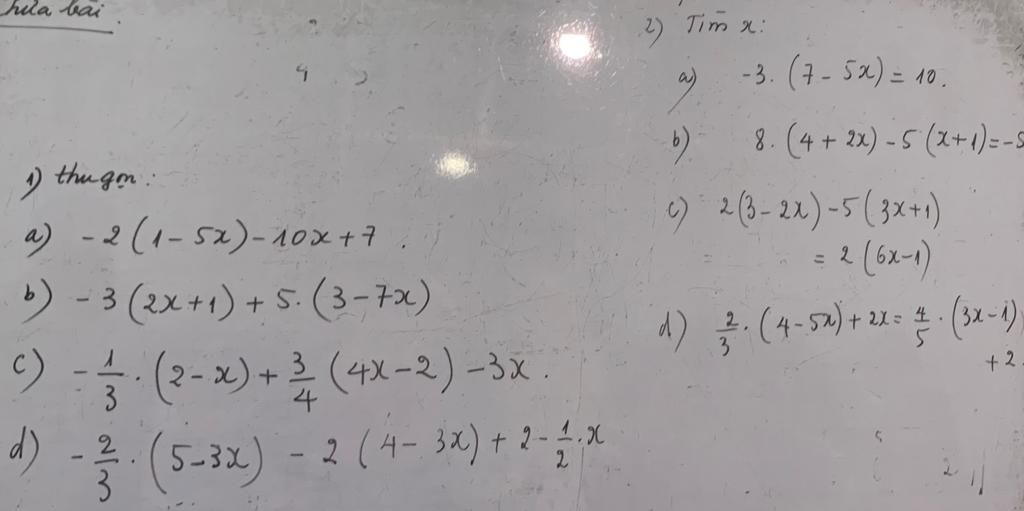 chữa bài
1) thu gọn:
a) -2(1-5x)-10x+7.
b) -3(2x+1)+5.(3-7x)
c) -1/3.(2-x)+3/4(4x-2)-3x.
d) -2/3.(5-3x)-2(4-3x)+2-1/2.x
2) Tìm x:
a) -3.(7-5x)=10.
b) 8.(4+2x)-5(x+1)=-5
c) 2(3-2x)-5(3x+1)
=2(6x-1)
d) 2/3.(4-5x)+2x=4/5.(3x-1)
+2.